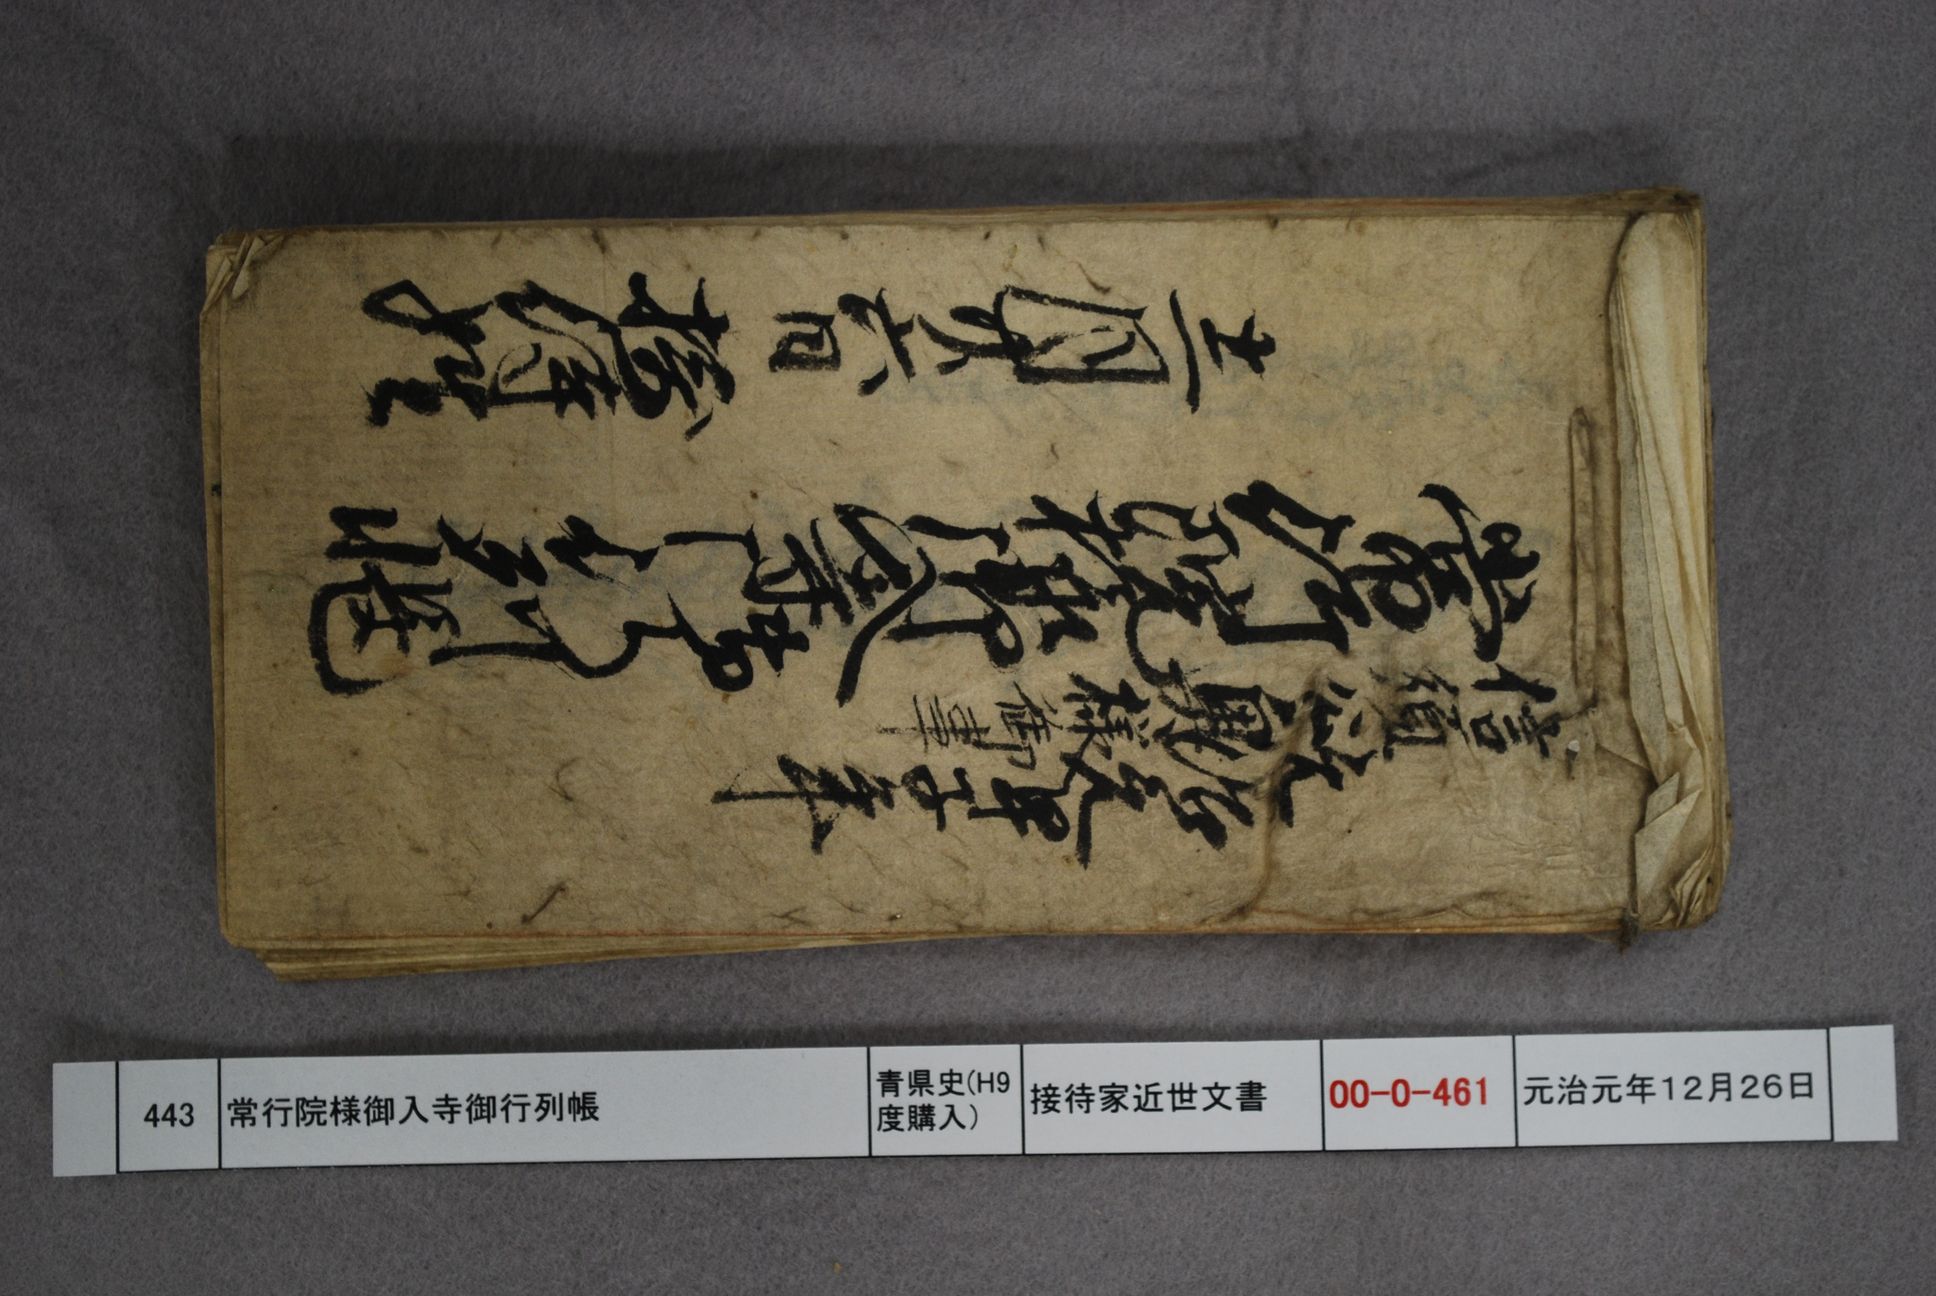 元治元甲子年
信順公奥様御事
常行院様御入寺御行列帳
十二月廿六日
443
常行院様御入寺御行列帳
青県史(H9
度購入)
接待家近世文書
00-0-461
元治元年12月26日